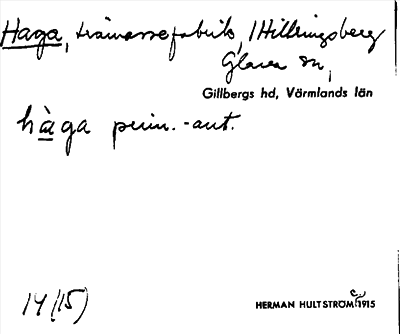 Haga, trämassefabrik, i Hillringsberg
Glava sn,
Gillbergs hd, Värmlands län
hàga penin. -aut.
14 (15)
HERMAN HULTSTRÖM 1915